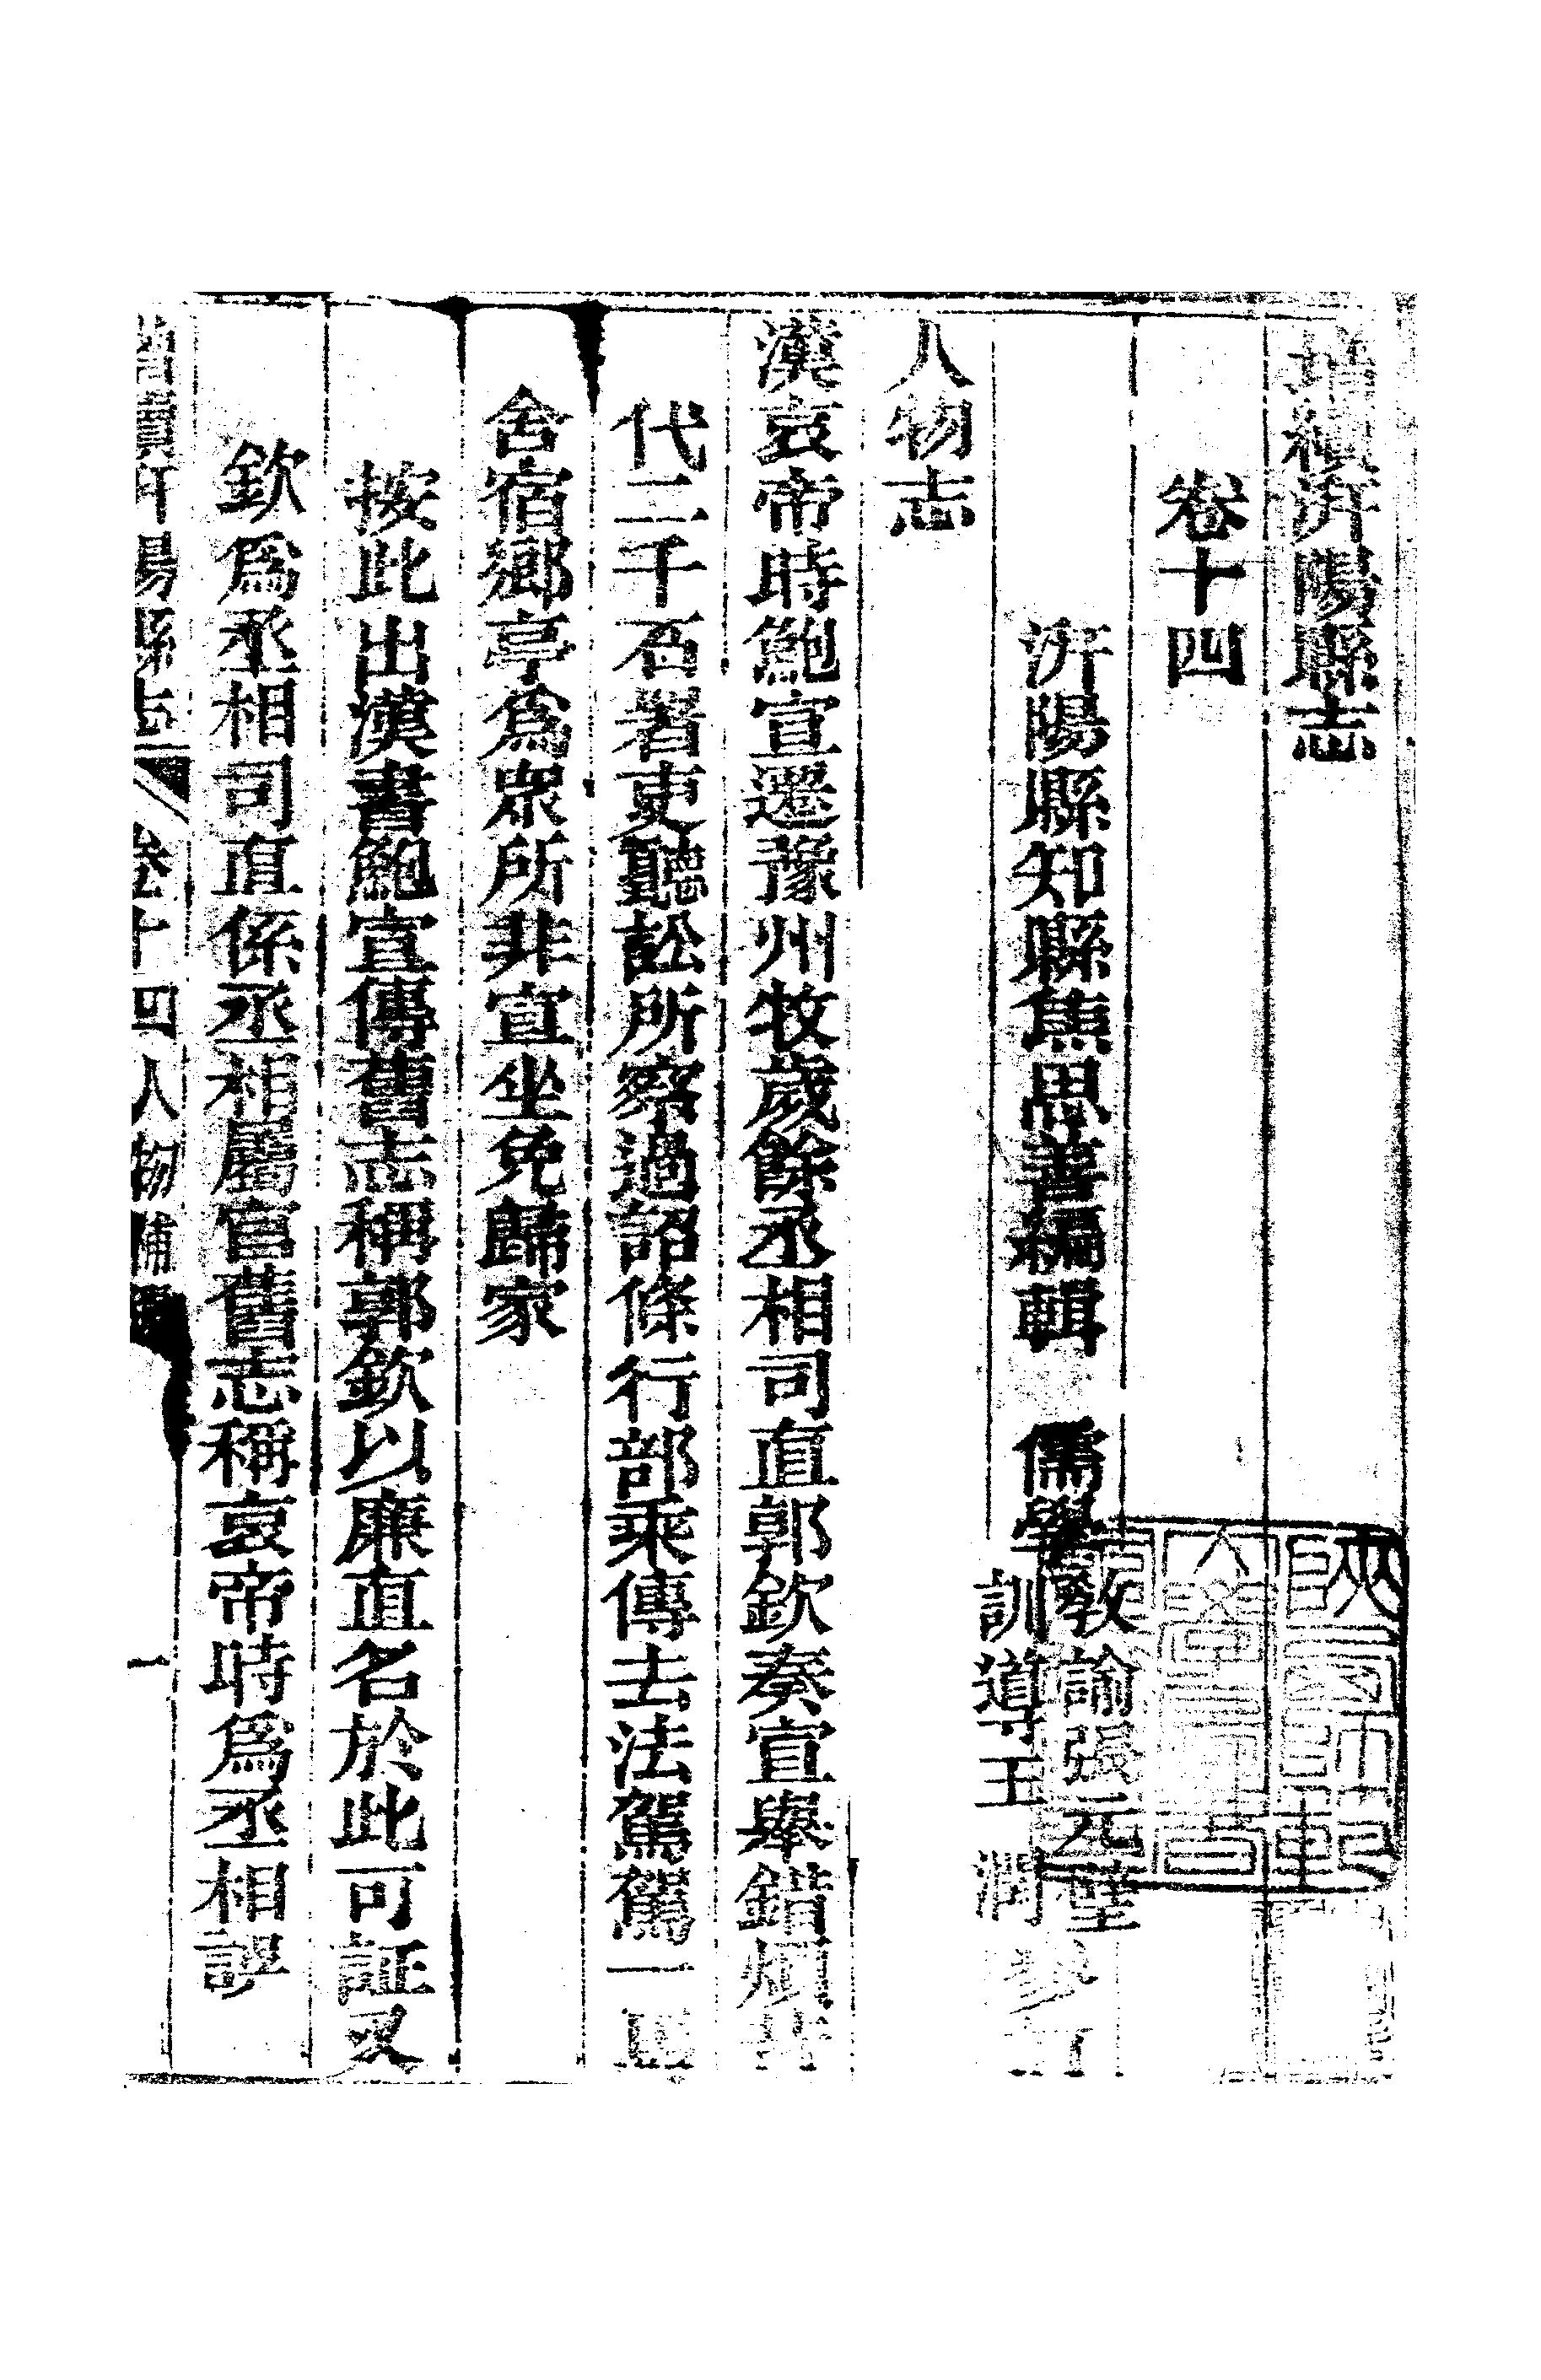 增續汧陽縣志
卷十四
汧陽縣知縣焦思善編輯 儒學教諭張元璧訓導王 潤參訂
人物志
漢哀帝時鮑宣遷豫州牧歲餘丞相司直郭欽奏宣舉錯煩苛
代二千石署吏聽訟所察過詔條行部乘傳去法駕駕一馬
舍宿鄉亭爲衆所非宣坐免歸家
按此出漢書鮑宣傳舊志稱郭欽以廉直名於此可証又
欽爲丞相司直係丞相屬官舊志稱哀帝時爲丞相誤
增續汧陽縣志 卷十四人物補 一